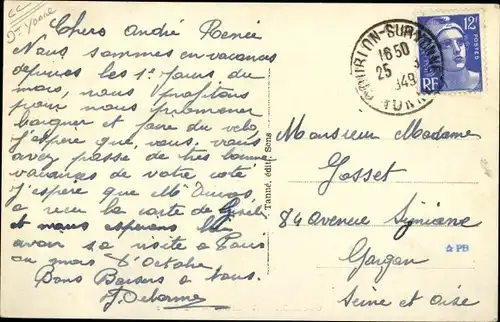 Chers André Renée
Nous sommes en vacances
depuis les 1er jours du
mois, nous profitons
pour nous promener
baigner et faire du velo
j'espère que vous vous
avez passé de très bonne
vacances de votre coté
J'espère que Me
a reçu la carte de
et nous esperons
avoir sa visite a Paris
au mois d'Octobre
Bons Baisers a tous.
Tanné, édit. Sens
COURLON-SUR-YONNE
16 50
25
1949
YONNE
12F
POSTES
RF
Monsieur Madame
Gosset
84 avenue
Gargan
Seine et Oise
PB